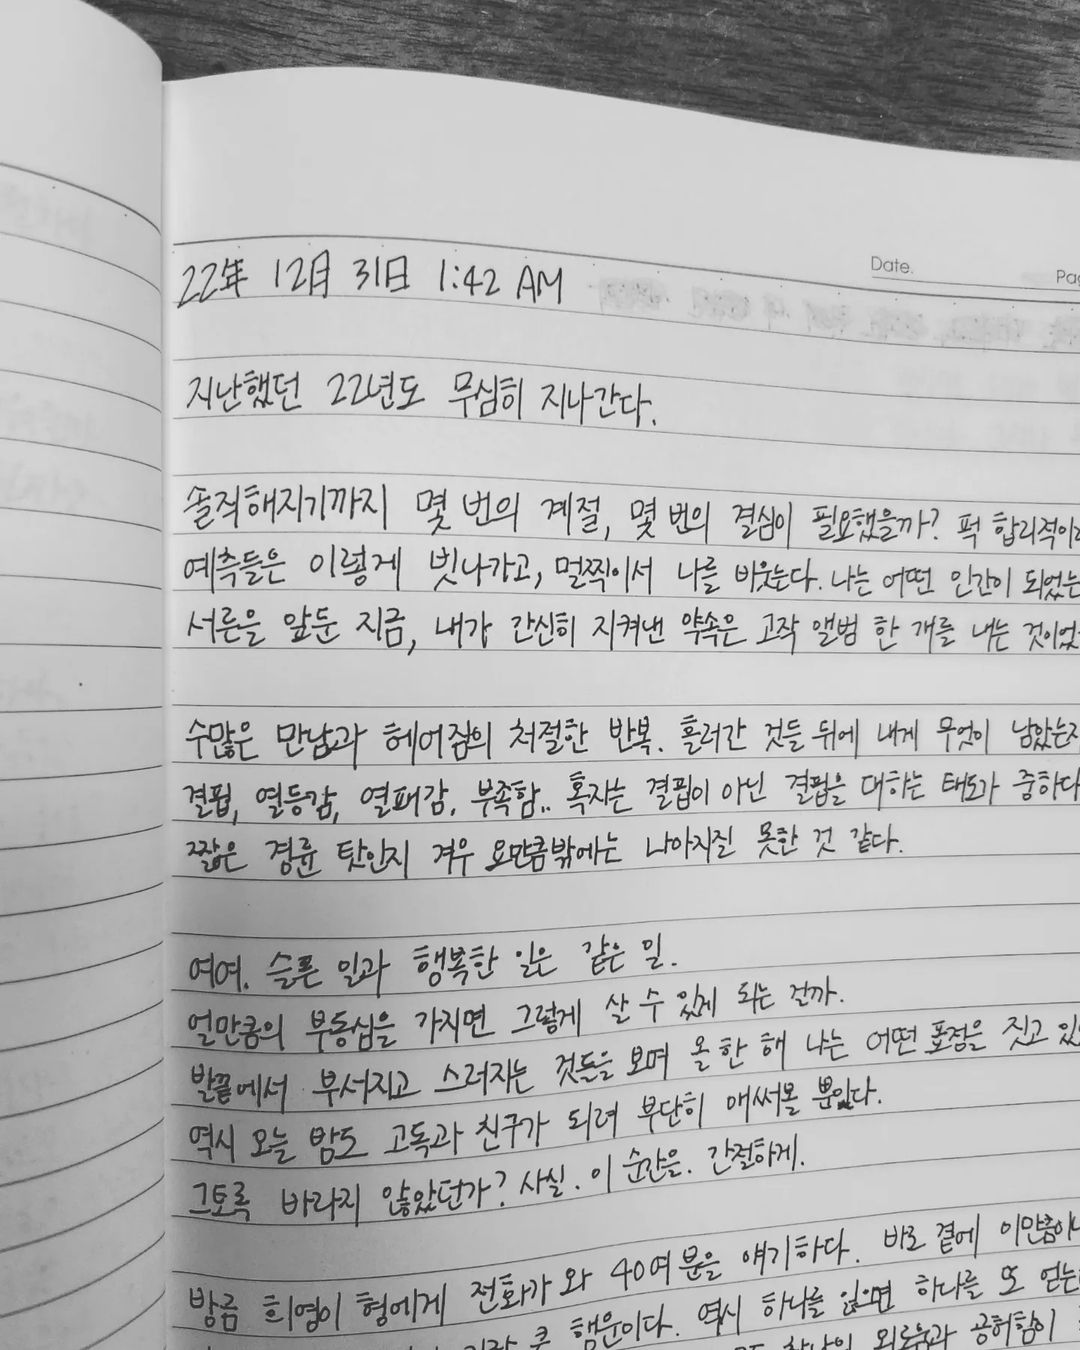 Date.
22年 12月 31日 1:42 AM
지난했던 22년도 무심히 지나간다.
솔직해지기까지 몇 번의 계절, 몇 번의 결심이 필요했을까? 퍽 합리적이라
예측들은 이렇게 빗나가고, 멀찍이서 나를 비웃는다. 나는 어떤 인간이 되었는
서른을 앞둔 지금, 내가 간신히 지켜낸 약속은 고작 앨범 한 개를 내는 것이었
수많은 만남과 헤어짐의 처절한 반복. 흘러간 것들 뒤에 내게 무엇이 남았는지
결핍, 열등감, 열패감, 부족함.. 혹자는 결핍이 아닌 결핍을 대하는 태도가 중하다
짧은 경륜 탓인지 겨우 요만큼밖에는 나아지질 못한 것 같다.
여여. 슬픈 일과 행복한 일은 같은 일.
얼만큼의 부동심을 가지면 그렇게 살 수 있게 되는 걸까.
발끝에서 부서지고 스러지는 것들을 보며 올 한 해 나는 어떤 표정을 짓고 있
역시 오늘 밤도 고독과 친구가 되려 부단히 애써볼 뿐이다.
그토록 바라지 않았던가? 사실. 이 순간을. 간절하게.
방금 희영이 형에게 전화가 와 40여 분을 얘기하다. 바로 곁에 이만큼이나
큰 행운이다. 역시 하나를 잃으면 하나를 또 얻는
외로움과 공허함이